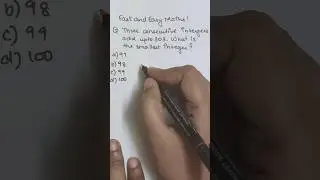 Fast and Easy Maths!
Q Three consecutive integers
add upto 303. What is
the smallest integer?
a) 97
b) 98
c) 99
d) 100
b) 98
c) 99
d) 100